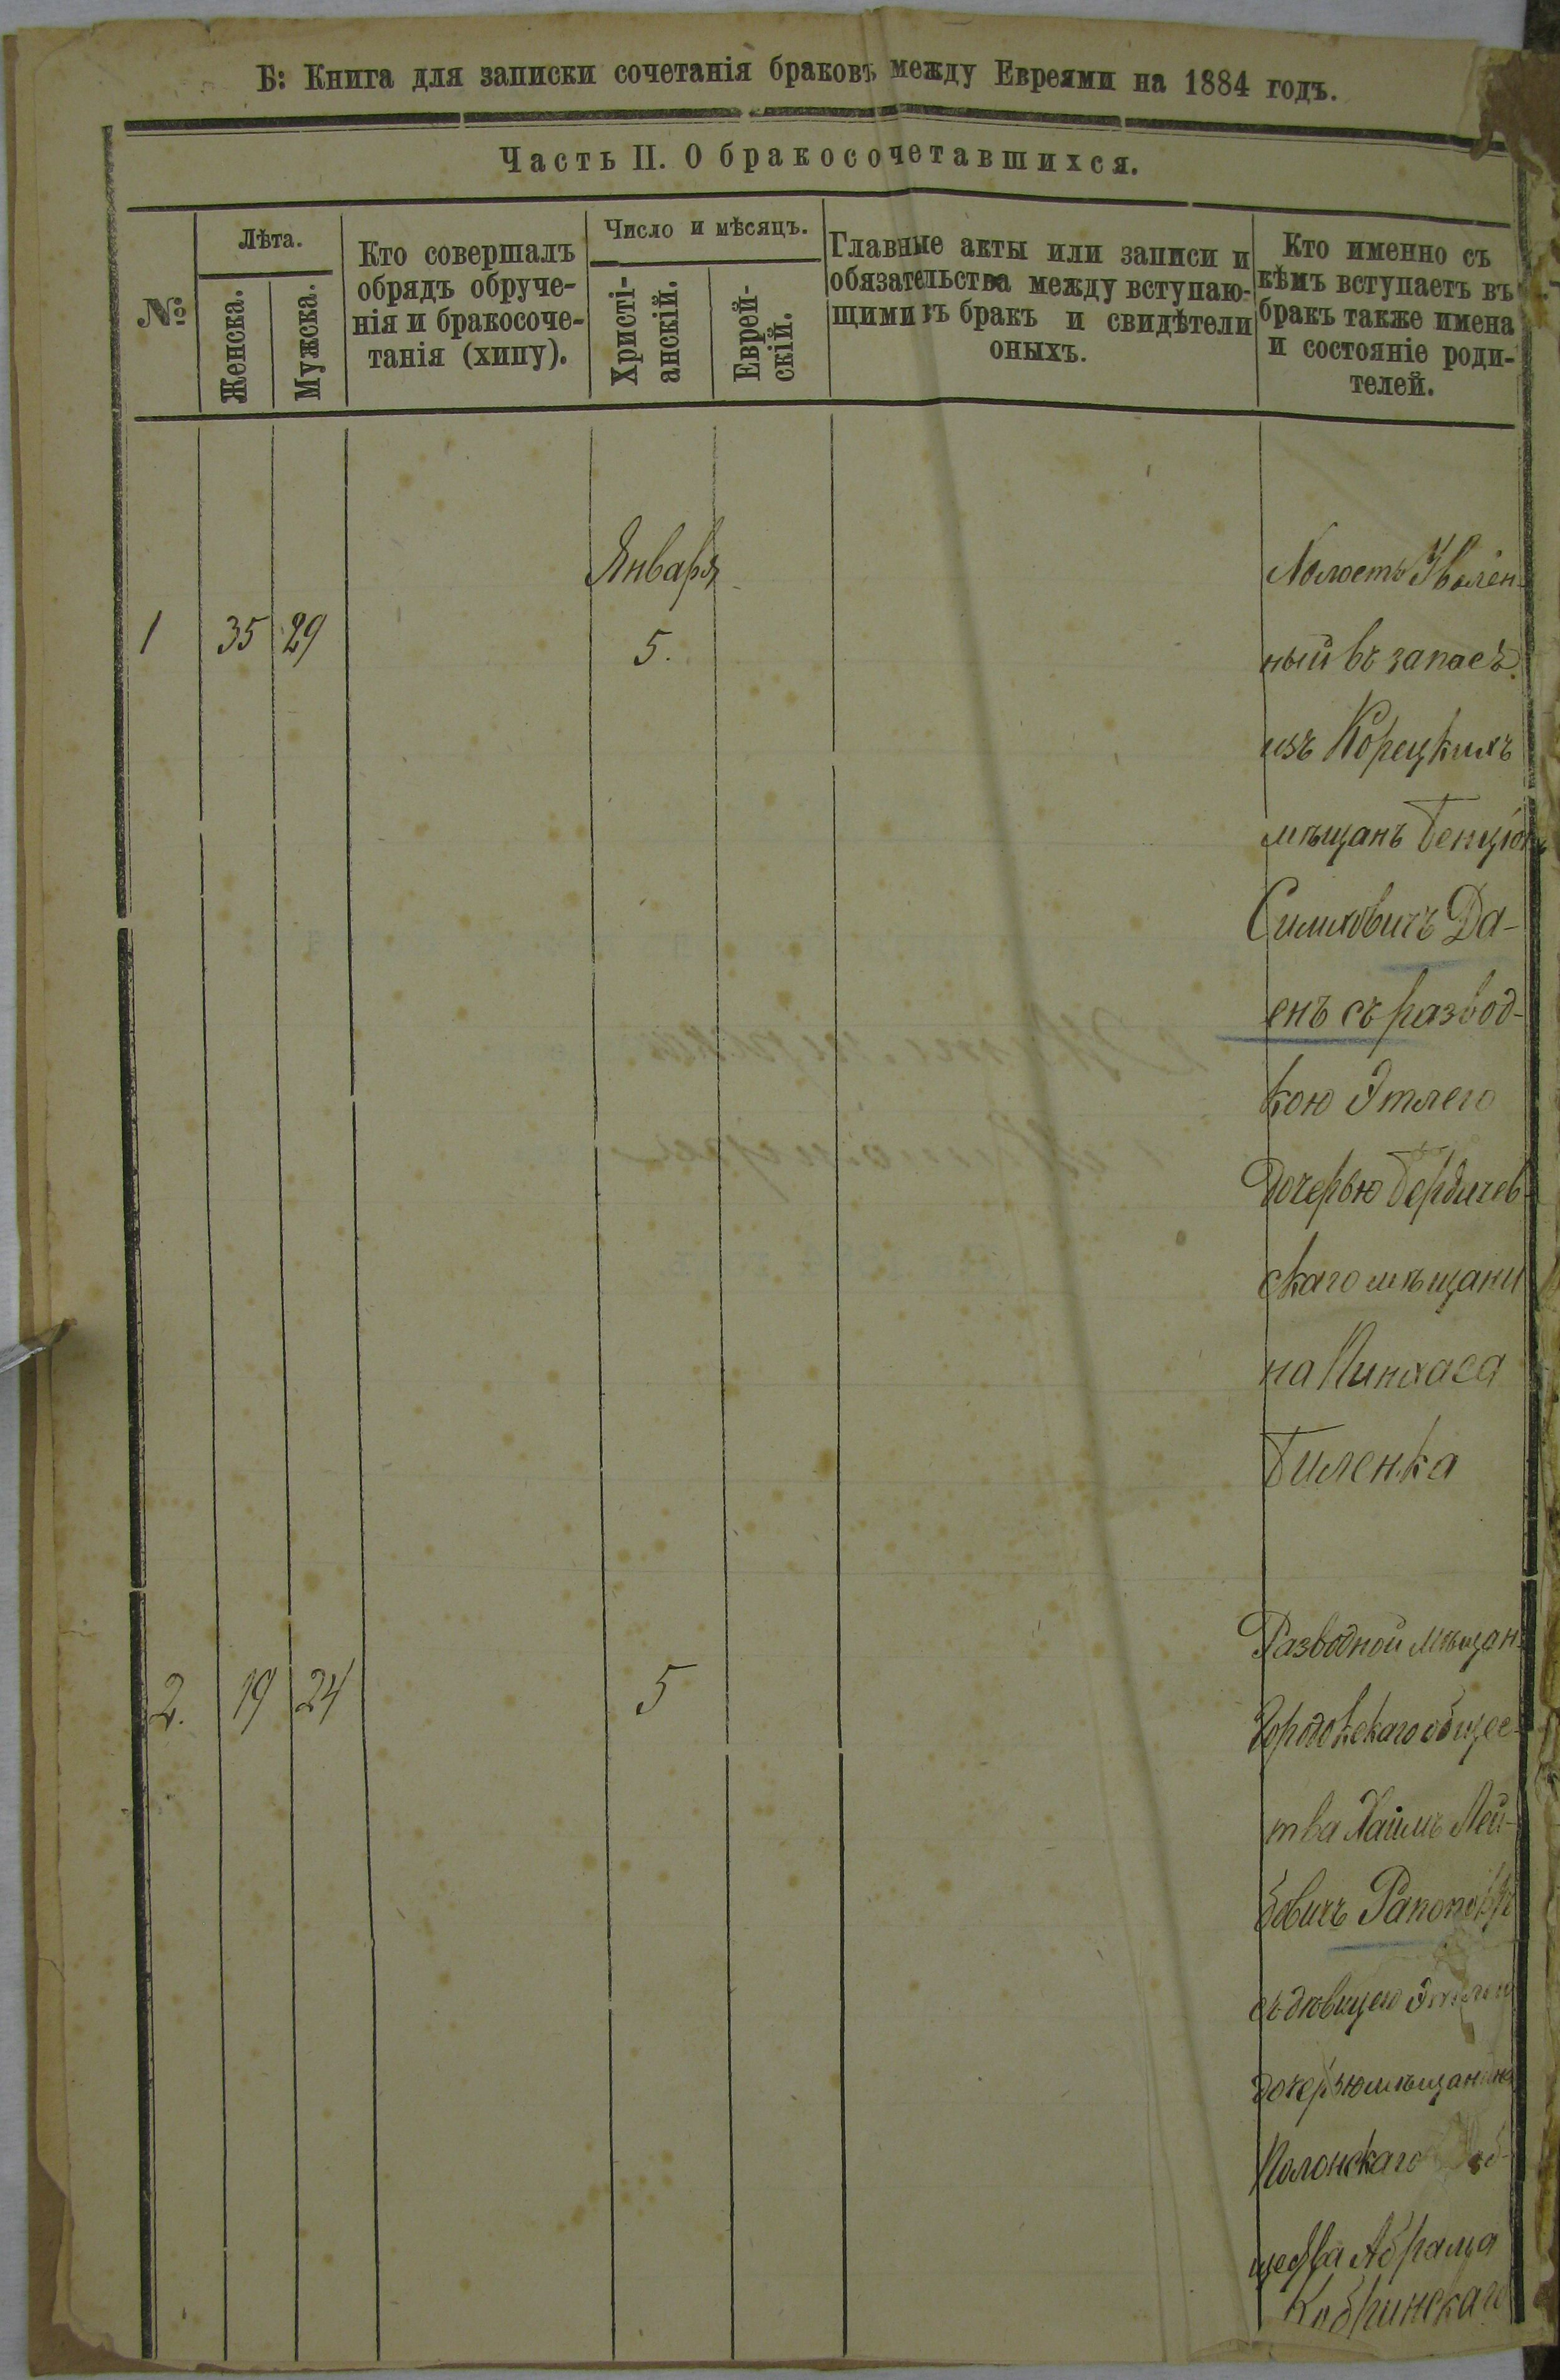 Б: Книга для записки сочетанія браковъ между Евреями на 1884 годъ.
Часть II. О бракосочетавшихся.
№
Лѣта.
Женска.
Мужска.
Кто совершалъ
обрядъ обруче-
нія и бракосоче-
танія (хипу).
Число и мѣсяцъ.
Христі-
анскій.
Еврей-
скій.
Главные акты или записи и
обязательства между вступаю-
щими въ бракъ и свидѣтели
оныхъ.
Кто именно съ
кѣмъ вступаетъ въ
бракъ также имена
и состояніе роди-
телей.
Января
1 35 29 5.
Холостъ Уволен-
ный въ запасъ
изъ Корецкихъ
мѣщанъ Бенціонъ
Симховичъ Да-
енъ съ развод-
кою Этлею
дочерью Бердичев-
скаго мѣщани
на Пинхаса
Биленка
2. 19 24 5
Разводной мѣщан.
Городокскаго общес-
тва Хаимъ Лей-
бовичъ Рапопортъ
съ вдовицею Этлею
дочерью мѣщанина
Полонскаго об-
щества Абрама
Кобринскаго